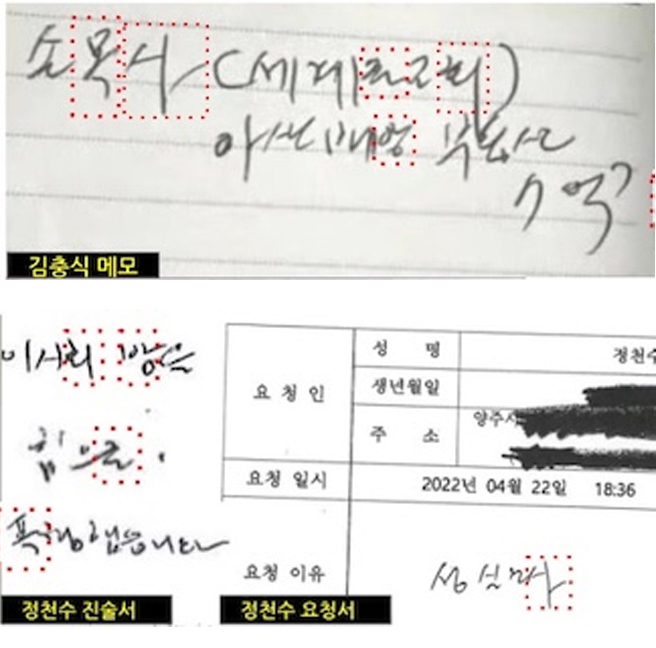 손목사 (세계로교회)
아산 배방 부동산
7억
김충식 메모
힘으로.
폭행했습니다
정천수 진술서
요청인
성 명
정천수
생년월일
주 소
양주시
요청 일시
2022년 04월 22일 18:36
요청 이유
정천수 요청서